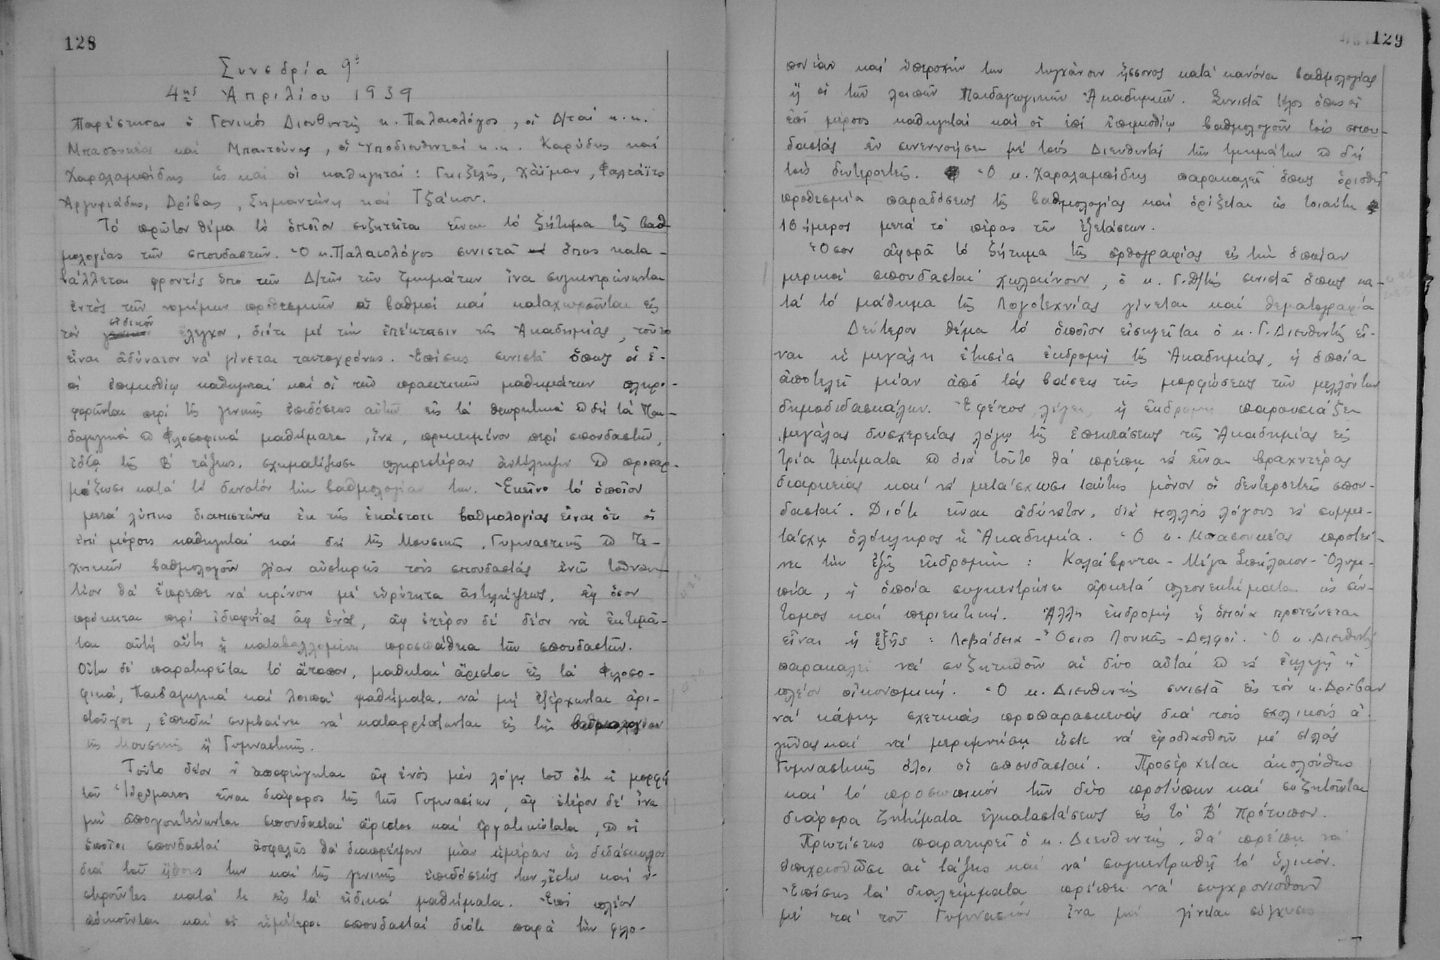 128
Συνεδρία 9η
4ης Ἀπριλίου 1939
Παρέστησαν ὁ Γενικός Διευθυντής κ. Παλαιολόγος, οἱ Δ/ταί κ.κ.
καί Μπαντούνας, οἱ Ὑποδιευθυνταί κ.κ. Καρύδης καί
Χαραλαμπίδης ὡς καί οἱ καθηγηταί: Γκιζελῆς, Χάϊμαν, Φαλτάϊτς
Ἀργυριάδης, Δρίβας, Σημαντώνη καί Τζάκου.
Τό πρῶτον θέμα τό ὁποῖον συζητεῖται εἶναι τό ζήτημα τῆς βαθ
μολογίας τῶν σπουδαστῶν. Ὁ κ. Παλαιολόγος συνιστᾶ ὅπως κατα-
βάλλεται φροντίς ὑπό τῶν Δ/τῶν τῶν τμημάτων ἵνα συγκεντρώνωνται
ἐντός τῶν νομίμων προθεσμιῶν οἱ βαθμοί καί καταχωροῦνται εἰς
τόν εἰδικόν ἔλεγχον, διότι μέ τήν ἐπέκτασιν τῆς Ἀκαδημίας, τοῦτο
εἶναι ἀδύνατον νά γίνεται ταυτοχρόνως. Ἐπίσης συνιστᾶ ὅπως οἱ ἐ-
πί ἐπιμισθίῳ καθηγηταί καί οἱ τῶν πρακτικῶν μαθημάτων πληρο-
φοροῦνται περί τῆς γενικῆς ἐπιδόσεως αὐτῶν εἰς τά θεωρητικά δή τά Παι-
δαγωγικά Φιλοσοφικά μαθήματα, ἵνα, προκειμένου περί σπουδαστῶν,
ἰδίᾳ τῆς Β' τάξεως, σχηματίζωσι πληρεστέραν ἀντίληψιν προσαρ-
μόζωσι κατά τό δυνατόν τήν βαθμολογίαν των. Ἐκεῖνο τό ὁποῖον
μετά λύπης διαπιστώνει ἐκ τῆς ἑκάστοτε βαθμολογίας εἶναι ὅτι οἱ
ἐπί μέρους καθηγηταί καί δή τῆς Μουσικῆς, Γυμναστικῆς Τε-
χνικῶν βαθμολογοῦν λίαν αὐστηρῶς τούς σπουδαστάς ἐνῶ
θά ἔπρεπε νά κρίνουν μέ εὐρύτητα ἀντιλήψεως, ἐφ' ὅσον
πρόκειται περί ἰδιοφυΐας ἀφ' ἑνός, ἀφ' ἑτέρου δέ δέον νά ἐκτιμᾶ-
ται αὐτή αὕτη ἡ καταβαλλομένη προσπάθεια τῶν σπουδαστῶν.
Οὕτω δέ παρατηρεῖται τό ἄτοπον, μαθηταί ἄριστοι εἰς τά Φιλοσο-
φικά, Παιδαγωγικά καί λοιπά μαθήματα, νά μή ἐξέρχωνται ἀρι-
στοῦχοι, ἐπειδή συμβαίνει νά καταρρίπτωνται εἰς τήν βαθμολογίαν
τῆς Μουσικῆς ἤ Γυμναστικῆς.
Τοῦτο δέον ν' ἀποφεύγηται ἀφ' ἑνός μέν λόγῳ τοῦ ὅτι ἡ μορφή
τοῦ Ἱδρύματος εἶναι διάφορος τῆς τῶν Γυμνασίων, ἀφ' ἑτέρου δέ ἵνα
μή ἀπογοητεύωνται σπουδασταί ἄριστοι καί ἐργατικώτατοι, οἱ
ὁποῖοι σπουδασταί ἀσφαλῶς θά διαπρέψουν μίαν ἡμέραν ὡς διδάσκαλοι
διά τοῦ ἤθους των καί τῆς γενικῆς ἐπιδόσεώς των, ἔστω καί ὑ-
στεροῦντες κατά τι εἰς τά εἰδικά μαθήματα. Ἐπί πλέον
ἀδικοῦνται καί οἱ ἡμέτεροι σπουδασταί διότι παρά τήν φιλο-
129
πονίαν καί ὑπεροχήν των τυγχάνουν ἥσσονος κατά κανόνα βαθμολογίας
ἤ οἱ τῶν λοιπῶν Παιδαγωγικῶν Ἀκαδημιῶν. Συνιστᾶ τέλος ὅπως οἱ
ἐπί μέρους καθηγηταί καί οἱ ἐπί ἐπιμισθίῳ βαθμολογοῦν τούς σπου-
δαστάς ἐν συνεννοήσει μέ τούς Διευθυντάς τῶν τμημάτων δή
τούς δευτεροετεῖς. Ὁ κ. Χαραλαμπίδης παρακαλεῖ ὅπως ὁρισθῇ
προθεσμία παραδόσεως τῆς βαθμολογίας καί ὁρίζεται ὡς τοιαύτη
10 ἡμέρος μετά τό πέρας τῶν ἐξετάσεων.
Ὅσον ἀφορᾶ τό ζήτημα τῆς ὀρθογραφίας εἰς τήν ὁποίαν
μερικοί σπουδασταί χωλαίνουν, ὁ κ. Γ. Δ/τής συνιστᾶ ὅπως κα-
τά τό μάθημα τῆς Λογοτεχνίας γίνεται καί θεματογραφία
Δεύτερον θέμα τό ὁποῖον εἰσηγεῖται ὁ κ. Γ. Διευθυντής εἶ-
ναι ἡ μεγάλη ἐτησία ἐκδρομή τῆς Ἀκαδημίας, ἡ ὁποία
ἀποτελεῖ μίαν ἀπό τάς βάσεις τῆς μορφώσεως τῶν μελλόντων
δημοδιδασκάλων. Ἐφέτος, λέγει, ἡ ἐκδρομή παρουσιάζει
μεγάλας δυσχερείας λόγῳ τῆς ἐπεκτάσεως τῆς Ἀκαδημίας εἰς
τρία τμήματα διά τοῦτο θά πρέπῃ νά εἶναι βραχυτέρας
διαρκείας καί νά μετάσχωσι ταύτης μόνον οἱ δευτεροετεῖς σπου-
δασταί. Διότι εἶναι ἀδύνατον, διά πολλούς λόγους νά συμμε-
τάσχῃ ὁλόκληρος ἡ Ἀκαδημία. Ὁ κ. προτεί-
νει τήν ἑξῆς ἐκδρομήν: Καλάβρυτα - Μέγα Σπήλαιον - Ὀλυμ-
πία, ἡ ὁποία συγκεντρώνει ἀρκετά πλεονεκτήματα ὡς σύν-
τομος καί περιεκτική. Ἄλλη ἐκδρομή ἡ ὁποία προτείνεται
εἶναι ἡ ἑξῆς: Λεβάδεια - Ὅσιος Λουκᾶς - Δελφοί. Ὁ κ. Διευθυντής
παρακαλεῖ νά συζητηθοῦν αἱ δύο αὐταί νά ἐκλεγῇ ἡ
πλέον οἰκονομική. Ὁ κ. Διευθυντής συνιστᾶ εἰς τόν κ. Δρίβαν
νά κάμῃ σχετικάς προπαρασκευάς διά τούς σχολικούς ἀ-
γῶνας καί νά μεριμνήσῃ ὥστε νά ἐφοδιασθοῦν μέ στολάς
Γυμναστικῆς ὅλοι οἱ σπουδασταί. Προσέρχεται ἀκολούθως
καί τό προσωπικόν τῶν δύο προτύπων καί συζητοῦνται
διάφορα ζητήματα ἐγκαταστάσεως εἰς τό Β' Πρότυπον.
Πρωτίστως παρατηρεῖ ὁ κ. Διευθυντής, θά πρέπῃ νά
διαχωρισθῶσι αἱ τάξεις καί νά συγκεντρωθῇ τό ὑλικόν.
Ἐπίσης τά διαλείμματα πρέπει νά συγχρονισθοῦν
μέ τά τοῦ Γυμνασίου ἵνα μή γίνεται σύγχυσις